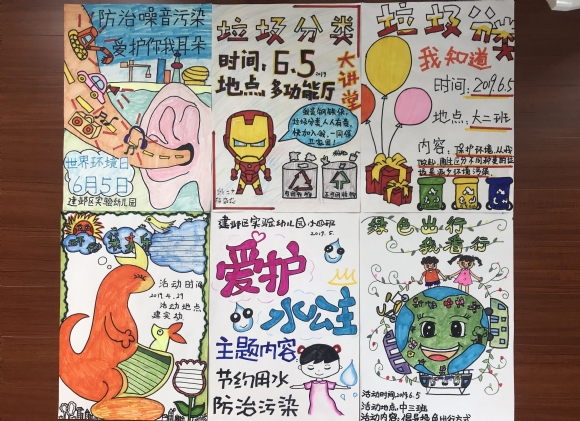 防治噪音污染
爱护你我耳朵
世界环境日
6月5日
建邺区实验幼儿园
垃圾分类
大讲堂
时间:6.5
2019
地点:多功能厅
我是钢铁侠,
垃圾分类人人有责
快加入我,一同保
卫家园!
垃圾分类
我知道
时间:2019.6.5
地点:大二班
内容:保护环境,从我
活动时间
2019.4.29
活动地点
建实幼
建邺区实验幼儿园小四班
2019.5.
爱护
水公主
主题内容
节约用水
防治污染
绿色出行
我看行
活动时间:2019.6.5
活动地点:中三班
活动内容:倡导绿色出行方式